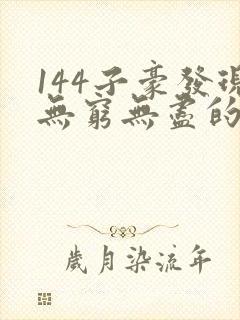 144子豪發現
無窮無盡的
歲月染流年